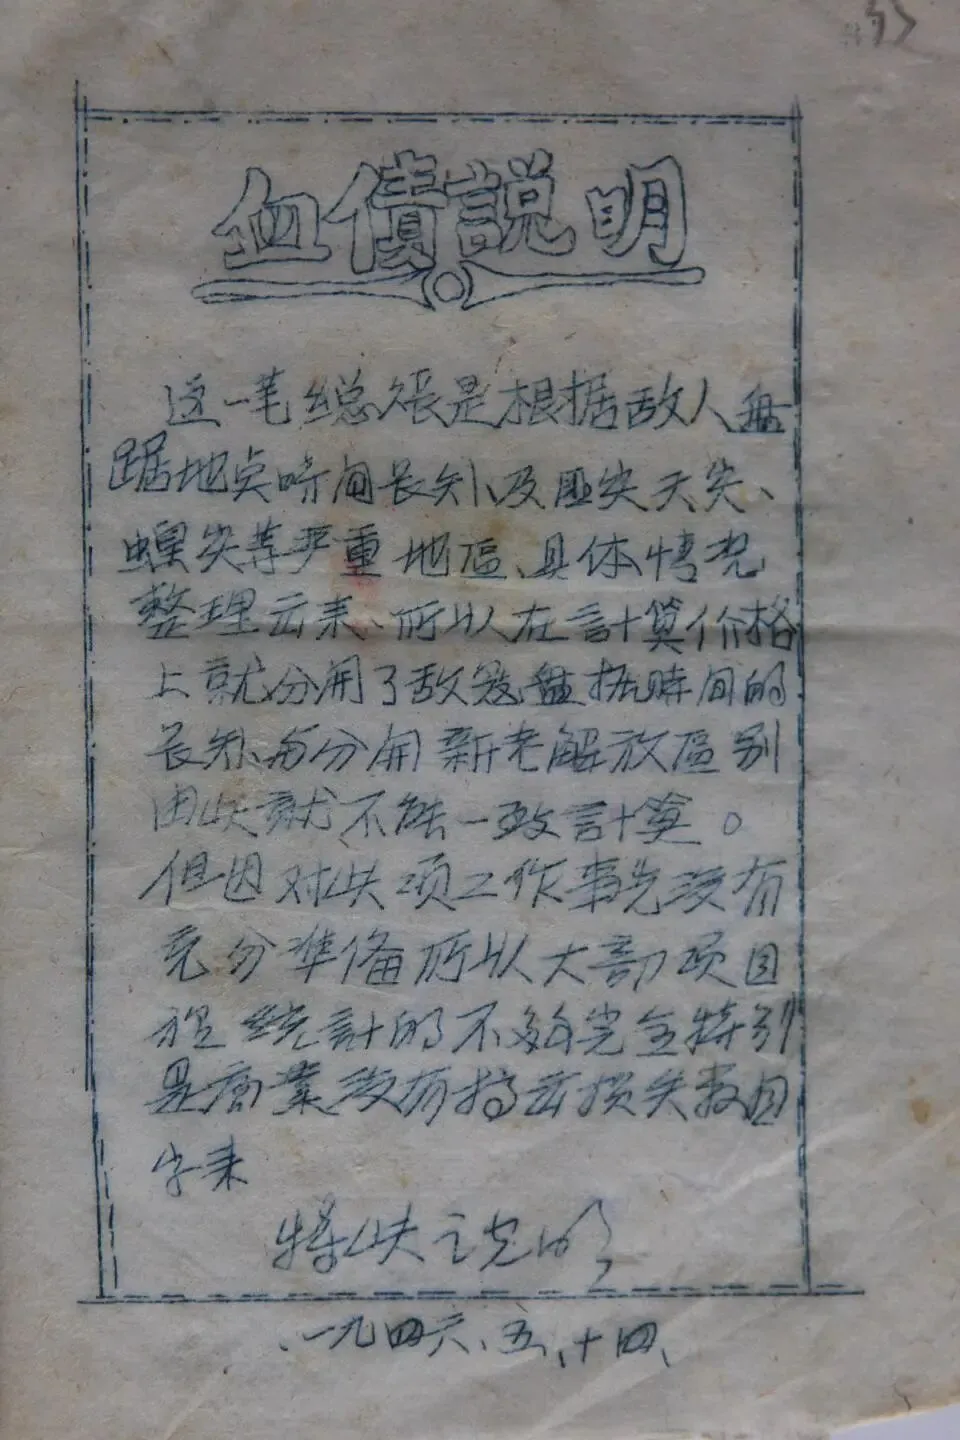 血債説明
这一笔総賬是根据敌人盘
踞地点時间長短、及匪灾天灾、
蝗灾等严重地區、具体情况
整理出来、所以在計算价格
上就分開了敌寇盘据時间的
長短、与分開新老解放區别
因此就不能一致計算。
但因对此项工作事先没有
充分準备所以大部项目
統計的不够完全特别
是商業没有搞出损失数目
字来
特此説明
一九四六、五、十四、